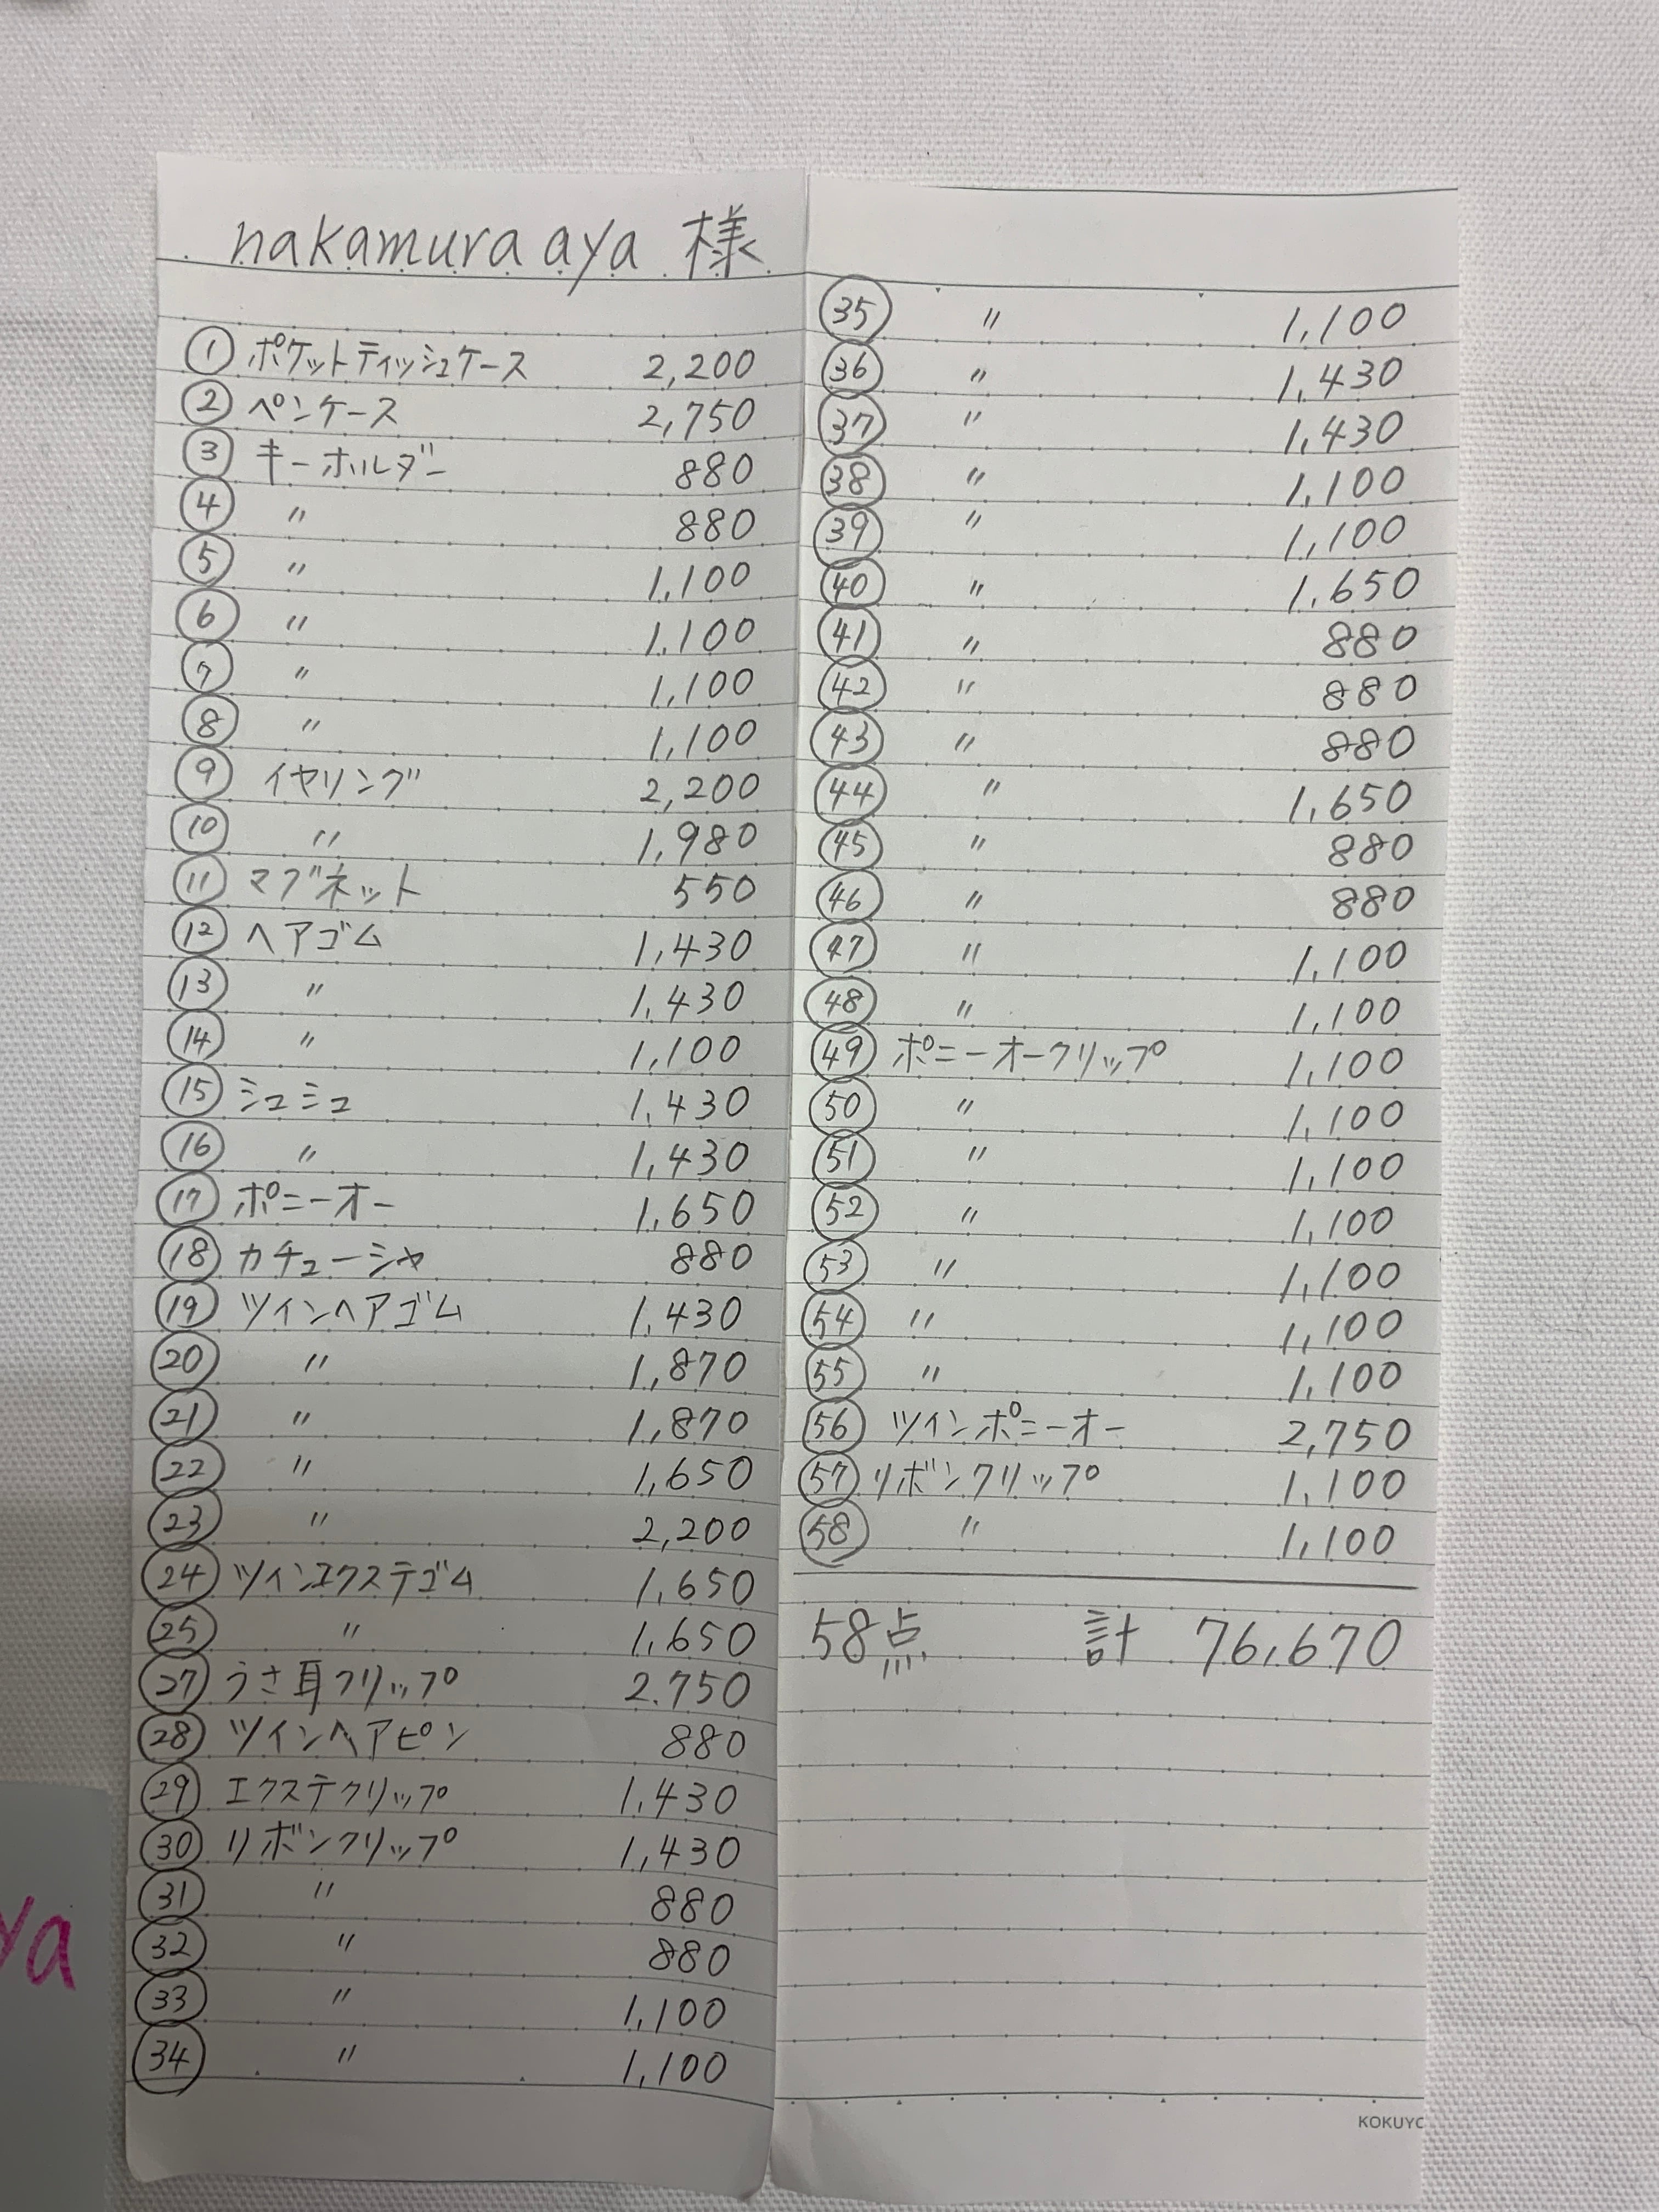 nakamura aya 様
① ポケットティッシュケース 2,200
② ペンケース 2,750
③ キーホルダー 880
④ 〃 880
⑤ 〃 1,100
⑥ 〃 1,100
⑦ 〃 1,100
⑧ 〃 1,100
⑨ イヤリング 2,200
⑩ 〃 1,980
⑪ マグネット 550
⑫ ヘアゴム 1,430
⑬ 〃 1,430
⑭ 〃 1,100
⑮ シュシュ 1,430
⑯ 〃 1,430
⑰ ポニーオー 1,650
⑱ カチューシャ 880
⑲ ツインヘアゴム 1,430
⑳ 〃 1,870
㉑ 〃 1,870
㉒ 〃 1,650
㉓ 〃 2,200
㉔ ツインエクステゴム 1,650
㉕ 〃 1,650
㉗ うさ耳クリップ 2.750
㉘ ツインヘアピン 880
㉙ エクステクリップ 1,430
㉚ リボンクリップ 1,430
㉛ 〃 880
㉜ 〃 880
㉝ 〃 1,100
㉞ 〃 1,100
㉟ 〃 1,100
㊱ 〃 1,430
㊲ 〃 1,430
㊳ 〃 1,100
㊴ 〃 1,100
㊵ 〃 1,650
㊶ 〃 880
㊷ 〃 880
㊸ 〃 880
㊹ 〃 1,650
㊺ 〃 880
㊻ 〃 880
㊼ 〃 1,100
㊽ 〃 1,100
㊾ ポニーオークリップ 1,100
㊿ 〃 1,100
51 〃 1,100
52 〃 1,100
53 〃 1,100
54 〃 1,100
55 〃 1,100
56 ツインポニーオー 2,750
57 リボンクリップ 1,100
58 〃 1,100
58点 計 76,670
KOKUYO
ya